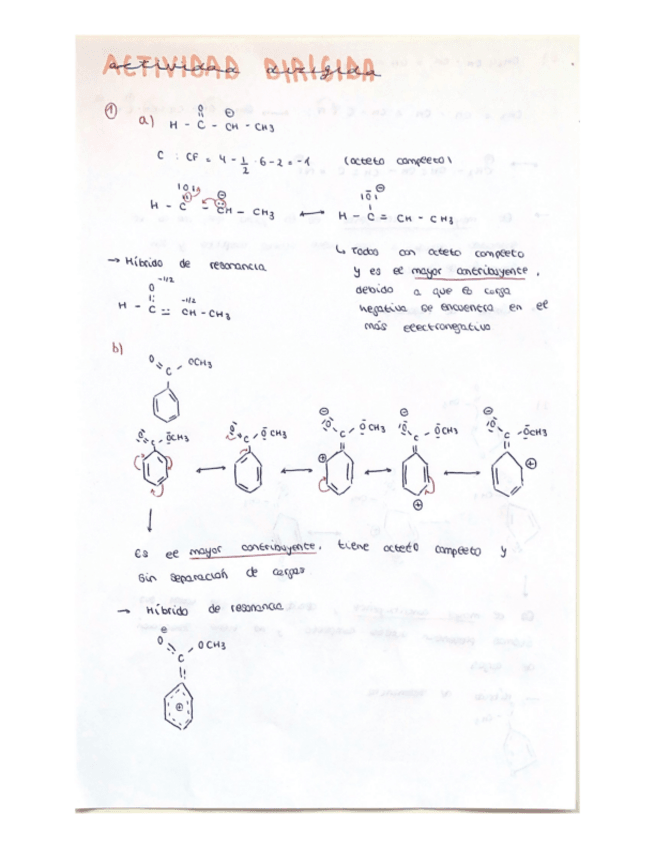 ACTIVIDAD DIRIGIDA
actividad dirigida
① a) H - C - CH - CH3
O ⊖
C : CF = 4 - 1/2 · 6 - 2 = -1 (octeto completo)
H - C - CH - CH3 ⟷ H - C = CH - CH3
→ Híbrido de resonancia
O -1/2
-1/2
H - C = CH - CH3
↳ Todos con octeto completo
y es el mayor contribuyente,
debido a que la carga
negativa se encuentra en el
más electronegativo
b)
O C - OCH3
O C - OCH3 ⟷ O C - OCH3 ⟷ ⊖ O C - OCH3 ⊕ ⟷ ⊖ O C - OCH3 ⊕ ⟷ ⊖ O C - OCH3 ⊕
Es el mayor contribuyente, tiene octeto completo y
sin separación de cargas
→ Híbrido de resonancia
⊖
O C - OCH3
⊕